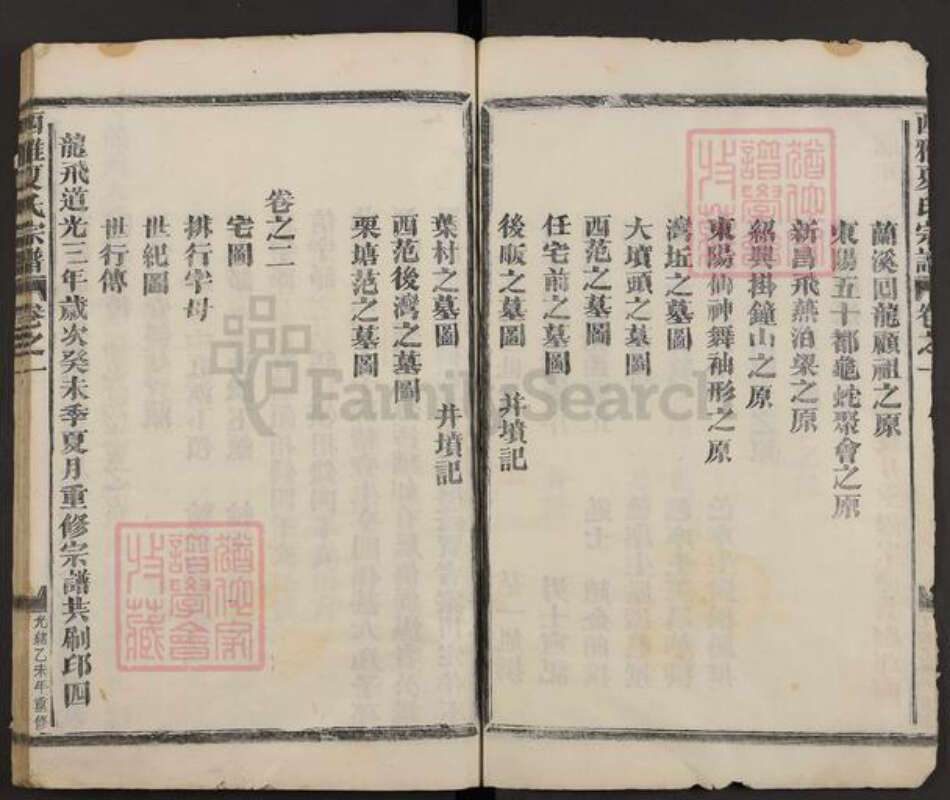 蘭溪囘龍顧祖之原
東陽五十都龜蛇聚會之原
新昌飛燕泊梁之原
紹興掛鐘山之原
東陽仙神舞袖形之原
灣坵之墓圖
大墳頭之墓圖
西范之墓圖
任宅前之墓圖
後畈之墓圖 井墳記
葉村之墓圖 井墳記
西范後灣之墓圖
栗塘范之墓圖
卷之二
宅圖
排行字母
世紀圖
世行傳
龍飛道光三年歲次癸未季夏月重修宗譜共刷印四
西雅夏氏宗譜 卷之一
光緒乙未年重修
FamilySearch